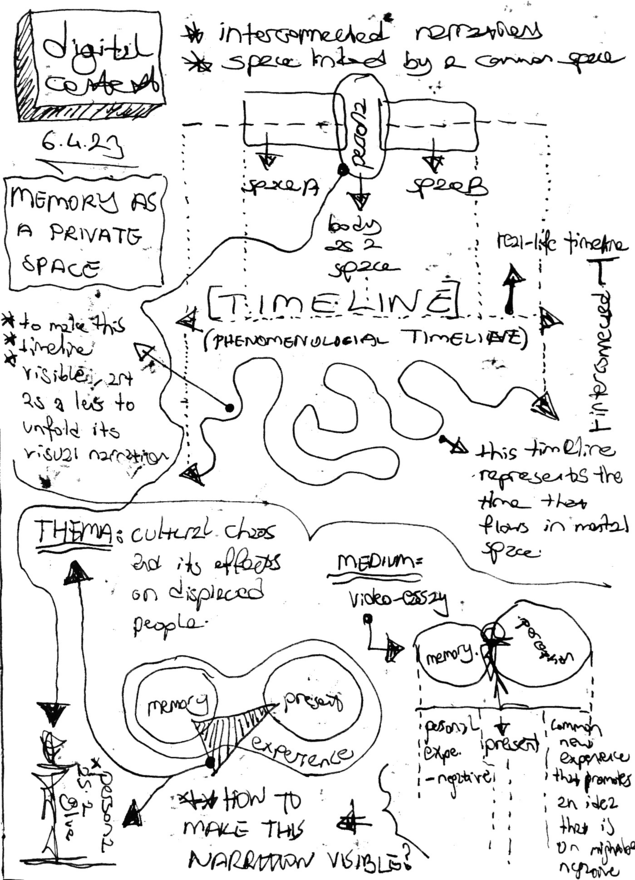 digital
context
6.4.23
* interconnected narratives
* space linked by a common space
persona
space A
space B
body
as a
space
real-life timeline
MEMORY AS
A PRIVATE
SPACE
[TIMELINE]
(PHENOMENOLOGICAL TIMELINE)
interconnected
* to make this
* timeline
* visible, art
as a lens to
unfold its
visual narration
this timeline
represents the
time that
flows in mental
space.
THEMA: cultural chaos
and its effects
on displaced
people.
MEDIUM=
video-essay
memory
present
experience
memory.
perception
personal
expe.
-negative
present
common
new
experience
that promotes
an idea
that is
on
negative
* persona
as a
glue
*** HOW TO
MAKE THIS
NARRATION VISIBLE?